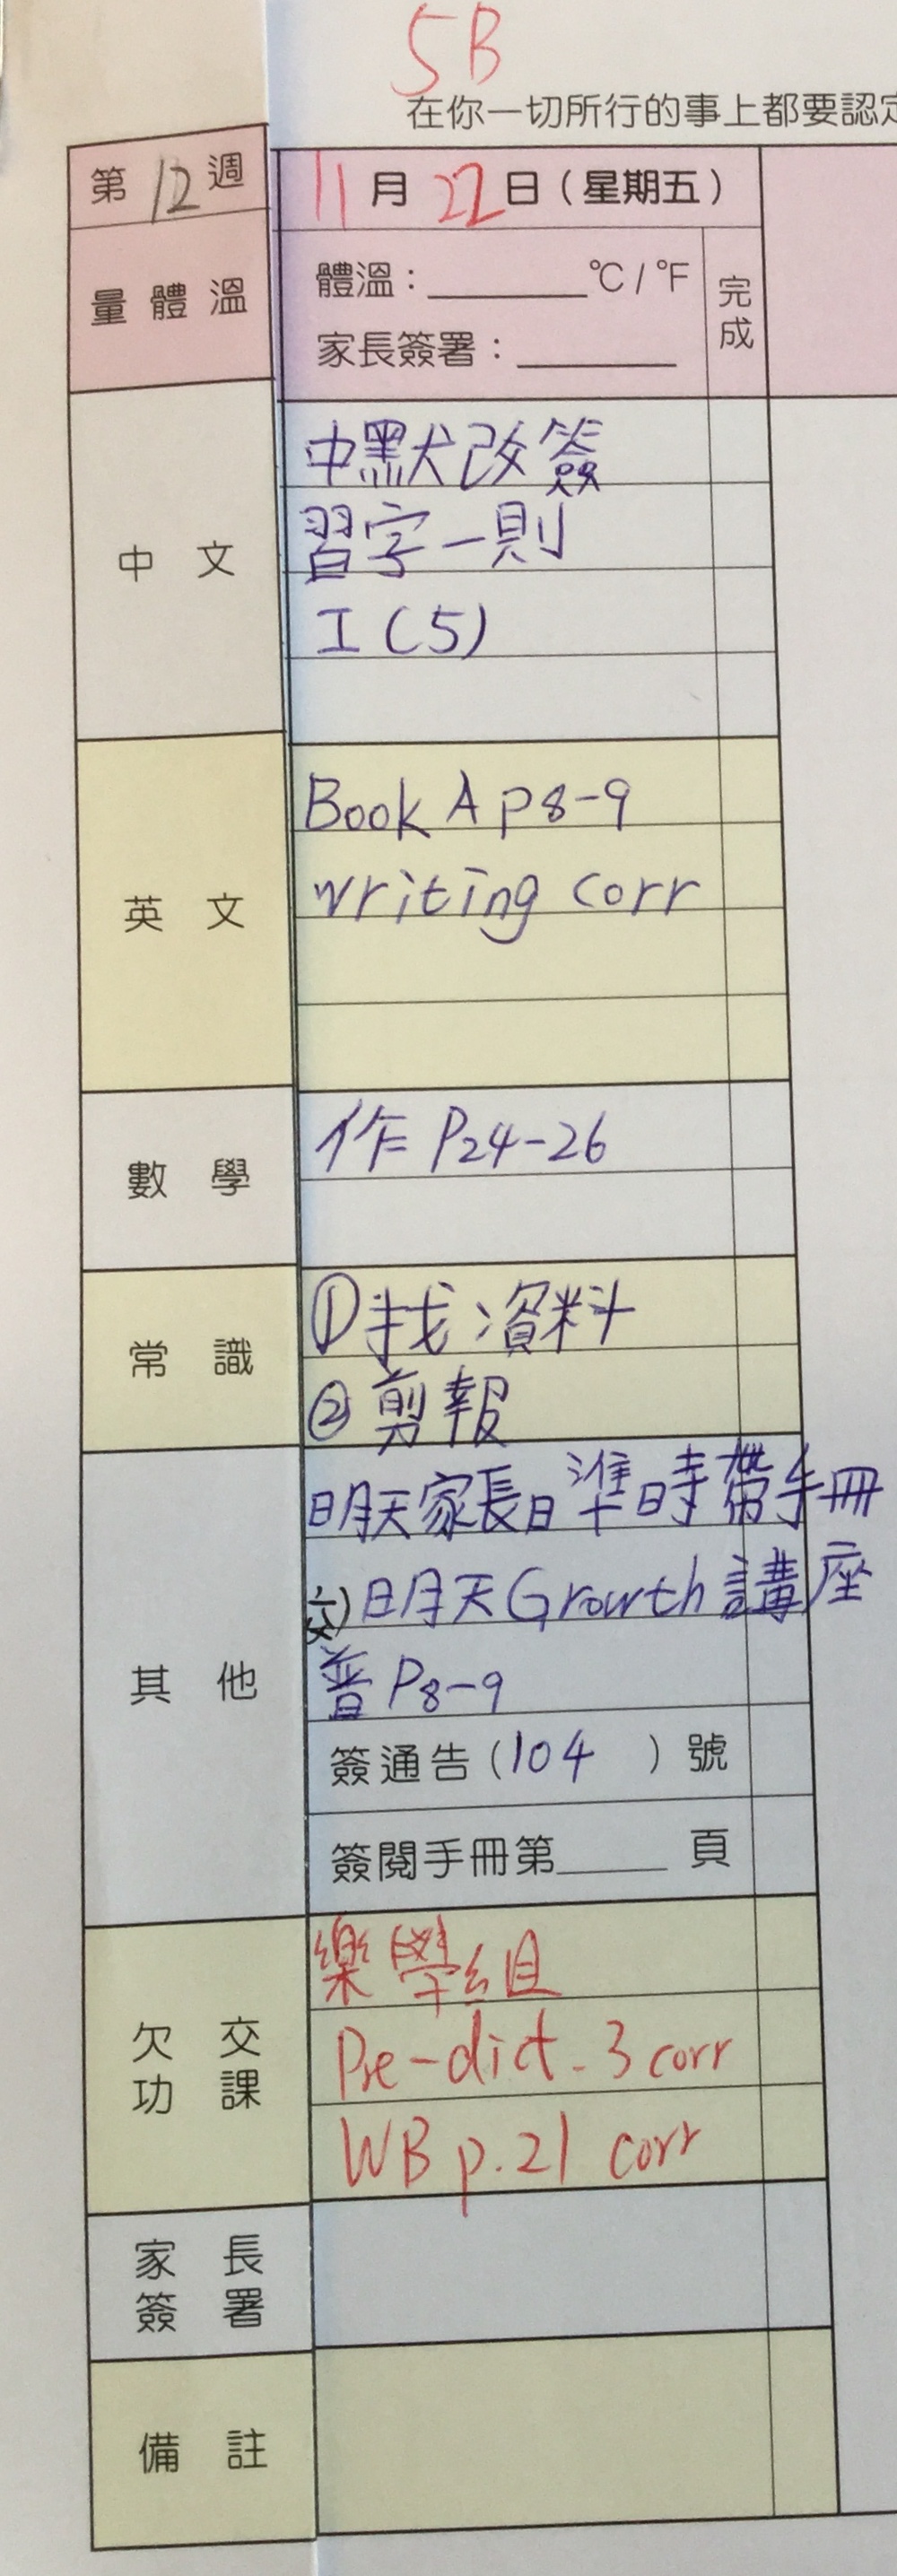 5B
在你一切所行的事上都要認定
第12週
11月22日(星期五)
量體溫
體溫:______°C/°F
家長簽署:______
完成
中文
中默改簽
習字一則
工(5)
英文
Book A p8-9
writing corr
數學
作 P24-26
常識
①找資料
②剪報
其他
明天家長日準時帶手冊
交)明天Growth講座
普P8-9
簽通告(104)號
簽閱手冊第____頁
欠交功課
樂學組
Pre-dict-3 corr
WB p.21 corr
家長簽署
備註